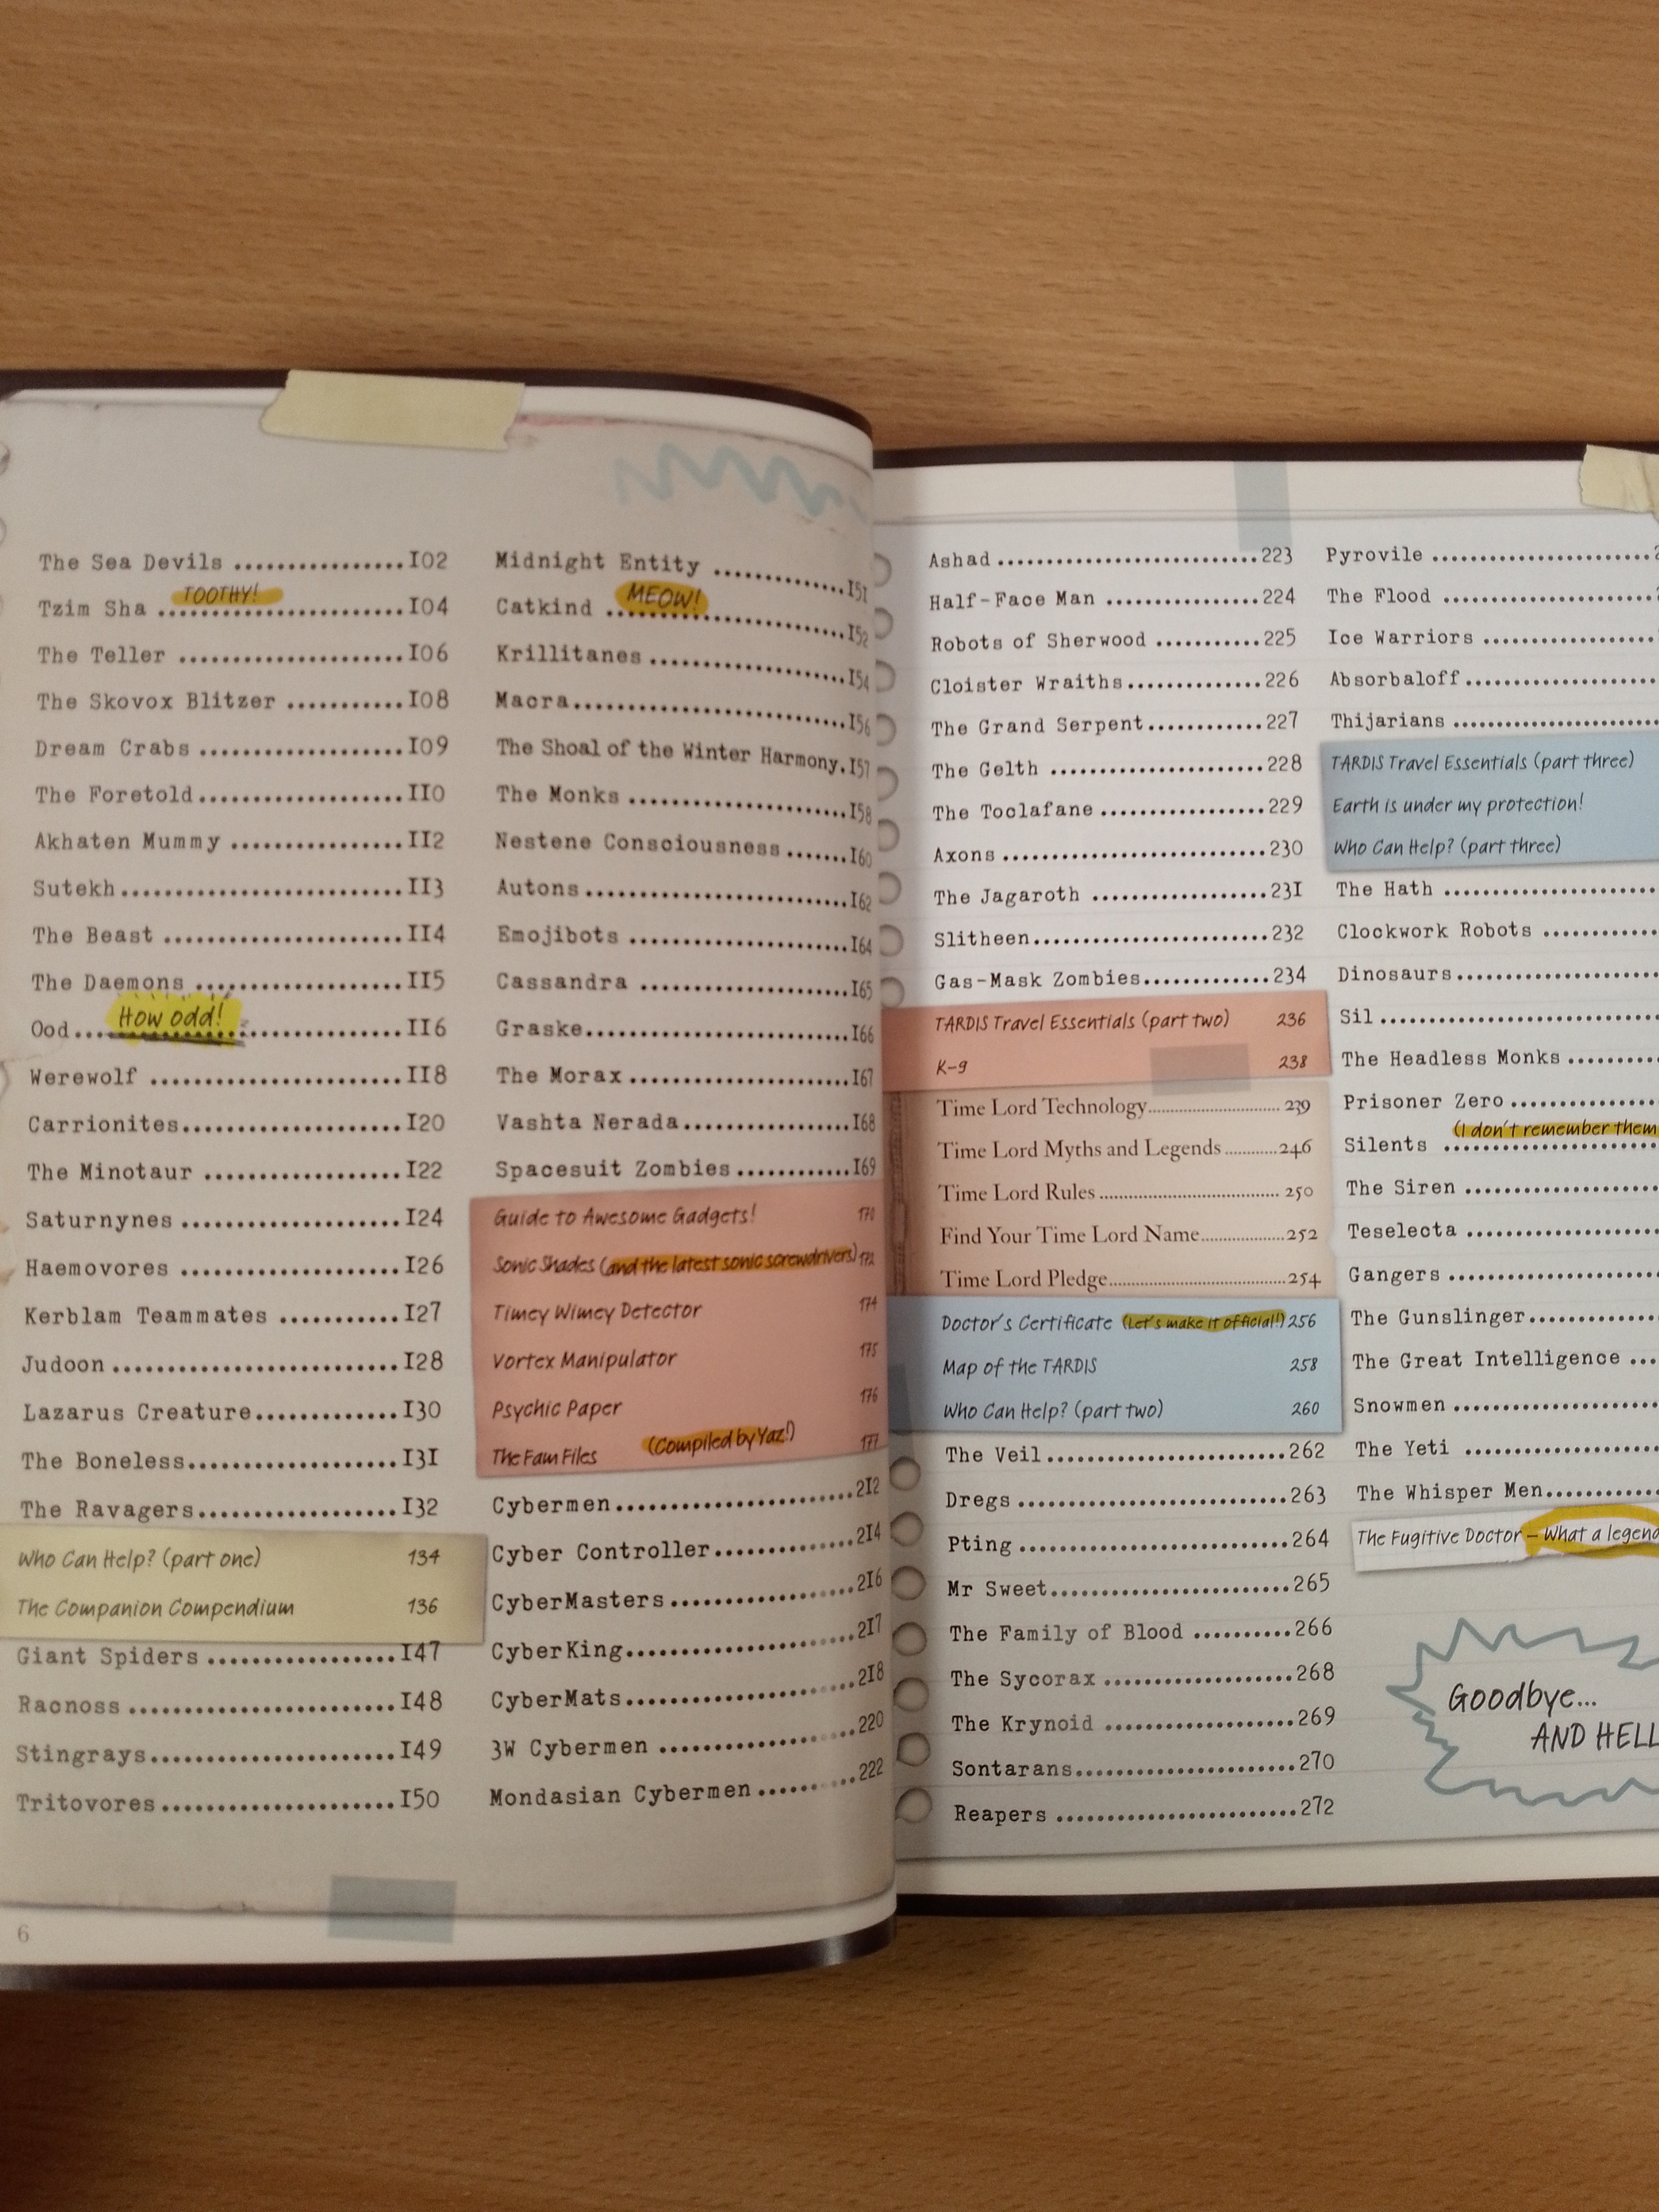 The Sea Devils ................102
TOOTHY!
Tzim Sha .......................104
The Teller .....................106
The Skovox Blitzer ...........108
Dream Crabs ...................109
The Foretold...................110
Akhaten Mummy ................112
Sutekh..........................113
The Beast ......................114
The Daemons ...................115
How odd!
Ood..............................116
Werewolf .......................118
Carrionites....................120
The Minotaur ..................122
Saturnynes ....................124
Haemovores ....................126
Kerblam Teammates ...........127
Judoon ..........................128
Lazarus Creature.............130
The Boneless...................131
The Ravagers...................132
Who Can Help? (part one) 134
The Companion Compendium 136
Giant Spiders .................147
Racnoss ........................148
Stingrays.......................149
Tritovores.....................150
6
Midnight Entity .............151
MEOW!
Catkind .......................152
Krillitanes ...................154
Macra...........................156
The Shoal of the Winter Harmony.157
The Monks .....................158
Nestene Consciousness .......160
Autons..........................162
Emojibots .....................164
Cassandra .....................165
Graske..........................166
The Morax ......................167
Vashta Nerada.................168
Spacesuit Zombies ............169
Guide to Awesome Gadgets! 170
Sonic Shades (and the latest sonic screwdrivers) 172
Timey Wimey Detector 174
Vortex Manipulator 175
Psychic Paper 176
The Fam Files (Compiled by Yaz!) 177
Cybermen.......................212
Cyber Controller..............214
CyberMasters ..................216
CyberKing......................217
CyberMats......................218
3W Cybermen ...................220
Mondasian Cybermen ..........222
Ashad ...........................223
Half-Face Man .................224
Robots of Sherwood ..........225
Cloister Wraiths..............226
The Grand Serpent............227
The Gelth ......................228
The Toclafane .................229
Axons ...........................230
The Jagaroth ..................231
Slitheen........................232
Gas-Mask Zombies.............234
TARDIS Travel Essentials (part two) 236
K-9 238
Time Lord Technology............ 239
Time Lord Myths and Legends............246
Time Lord Rules ............ 250
Find Your Time Lord Name............252
Time Lord Pledge............254
Doctor's Certificate (Let's make it official!) 256
Map of the TARDIS 258
Who Can Help? (part two) 260
The Veil ........................262
Dregs ...........................263
Pting ...........................264
Mr Sweet........................265
The Family of Blood ..........266
The Sycorax ...................268
The Krynoid ...................269
Sontarans.......................270
Reapers ........................272
Pyrovile ........................
The Flood .......................
Ice Warriors ...................
Absorbaloff.....................
Thijarians .....................
TARDIS Travel Essentials (part three)
Earth is under my protection!
Who Can Help? (part three)
The Hath ........................
Clockwork Robots .............
Dinosaurs.......................
Sil ..............................
The Headless Monks ..........
Prisoner Zero .................
(I don't remember them
Silents ........................
The Siren ......................
Teselecta ......................
Gangers ........................
The Gunslinger................
The Great Intelligence ...
Snowmen ........................
The Yeti .......................
The Whisper Men...............
The Fugitive Doctor – What a legend
Goodbye...
AND HELL